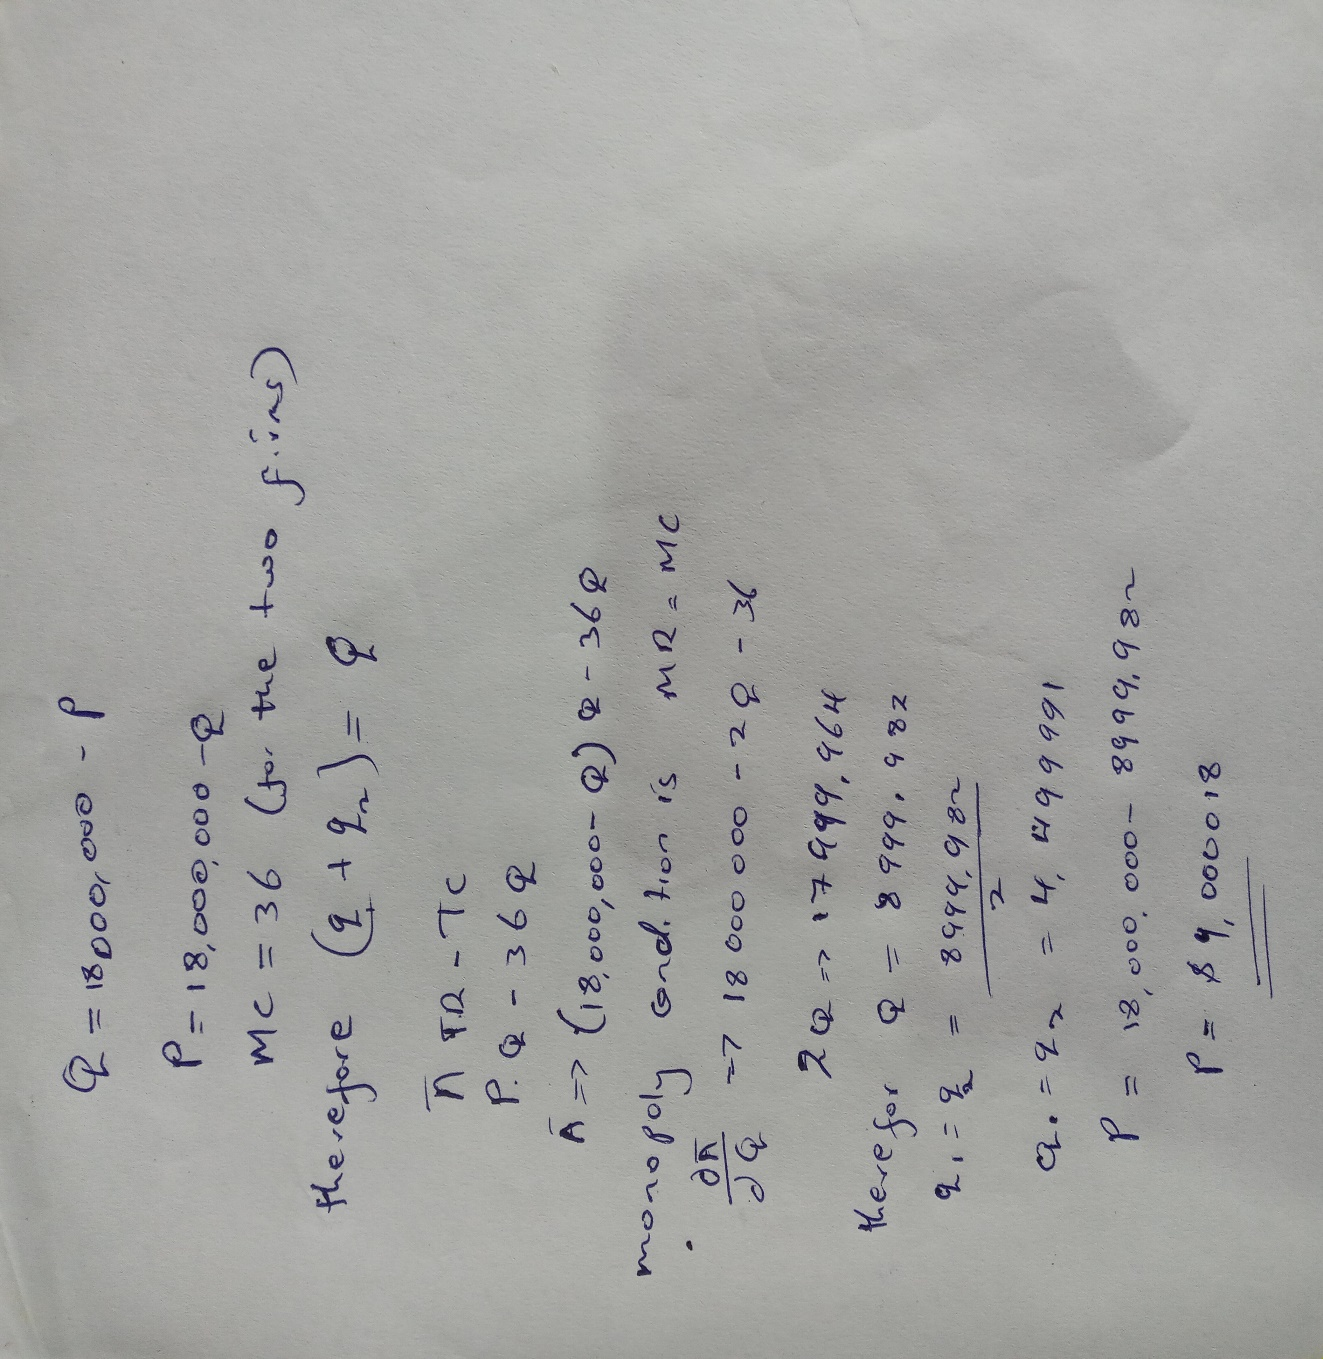 Q = 18,000,000 - P
P = 18,000,000 - Q
MC = 36 (for the two firms)
therefore (q1 + q2) = Q
π TR - TC
P.Q - 36Q
π => (18,000,000 - Q) Q - 36Q
monopoly condition is MR = MC
∂π/∂Q => 18000000 - 2Q - 36
2Q => 17999,964
therefor Q = 8999,982
q1 = q2 = 8999,982/2
q1 = q2 = 4,499991
P = 18,000,000 - 8999,982
P = $9,000018